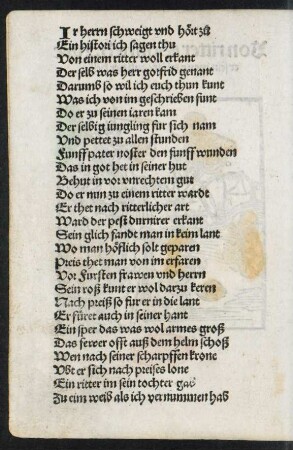 Ir herrn schweigt vnd hört zů
Ein histori ich sagen thu
Von einem ritter woll erkant
Der selb was herr gotfrid genant
Darumb so wil ich euch thun kunt
Was ich von im geschrieben funt
Do er zu seinen iaren kam
Der selbig iungling fur sich nam
Vnd pettet zu allen stunden
Funff pater noster den funff wunden
Das in got het in seiner hut
Behut in vor vnrechtem gut
Do er nun zu einem ritter wardt
Er thet nach ritterlicher art
Ward der pest durnirer erkant
Sein glich fandt man in keim lant
Wo man höflich solt geparen
Preis thet man von im erfaren
Vor Fursten frawen vnd herrn
Sein roß kunt er wol darzu keren
Nach preiß so fur er in die lant
Er füret auch in seiner hant
Ein sper das was wol armes groß
Das fewer offt auß dem helm schoß
Wen nach seiner scharpffen krone
Vbt er sich nach preises lone
Ein ritter im sein tochter gab
Zu eim weib als ich vernummen hab